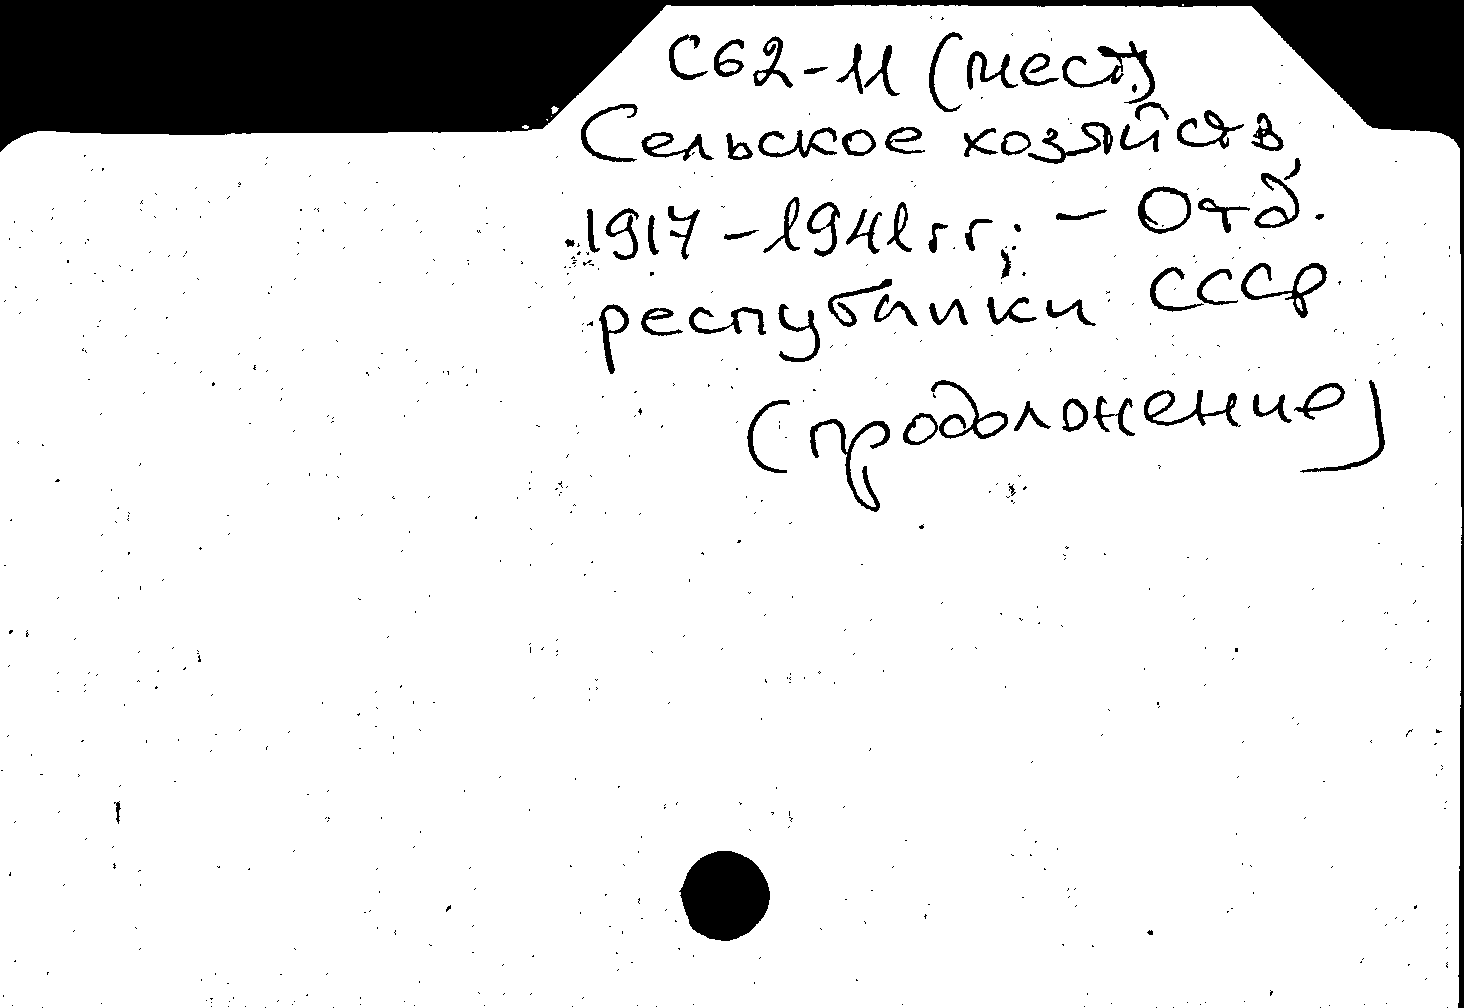 С62-11 (мест)
Сельское хозяйств,
1917-1941 гг; - Отд.
республики СССР
(продолжение)